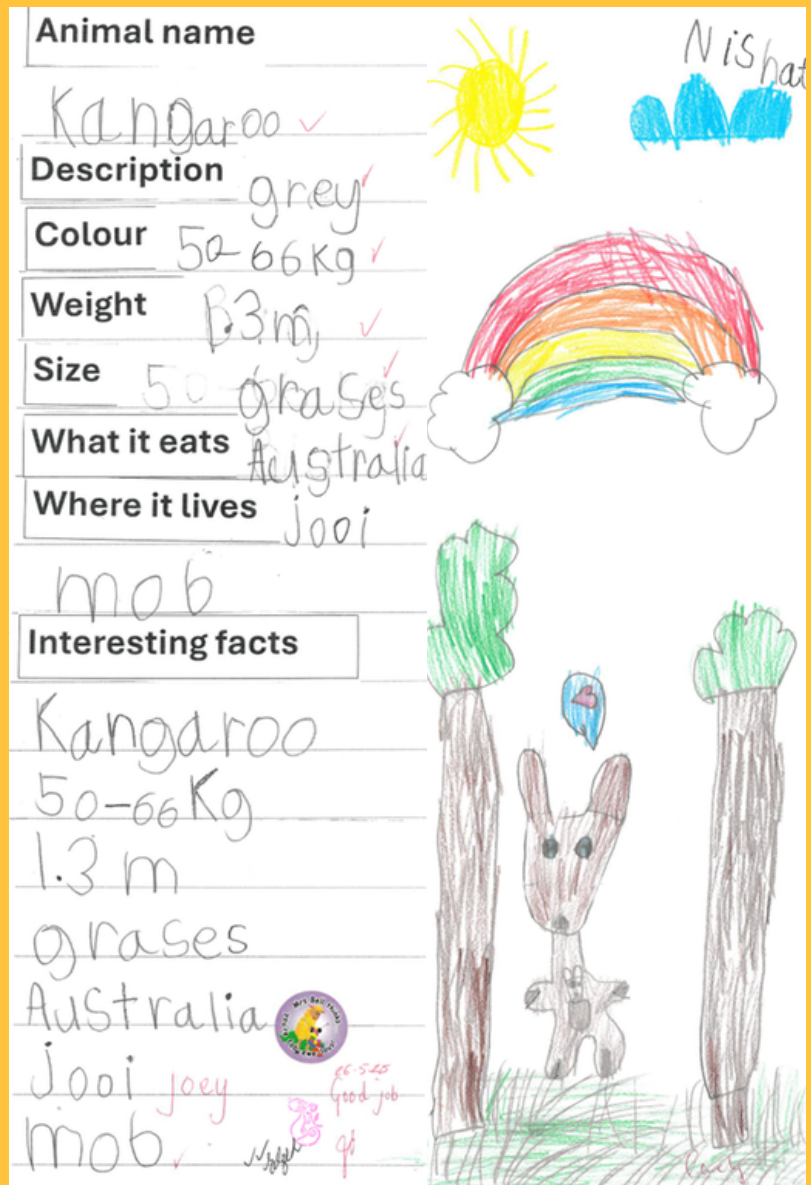 Animal name
Nishat
Kangaroo
Description
grey
Colour
50-66kg
Weight
1.3m
Size
50
grases
What it eats
Australia
Where it lives
jooi
mob
Interesting facts
Kangaroo
50-66Kg
1.3 m
grases
Australia
Mrs Bell thinks
jooi joey
26-5-25
Good job
mob